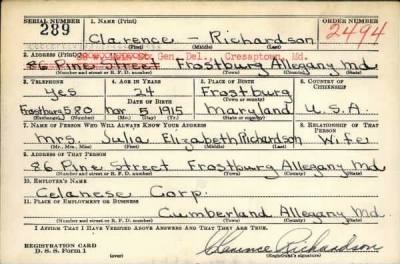 SERIAL NUMBER 1. NAME (Print) ORDER NUMBER
289 Clarence - Richardson 2494
(First) (Middle) (Last)
2. ADDRESS (Print)
Gen. Del., Cresaptown, Md.
86 Pine Street Frostburg Allegany Md
(Number and street or R. F. D. number) (Town) (County) (State)
3. TELEPHONE 4. AGE IN YEARS 5. PLACE OF BIRTH 6. COUNTRY OF CITIZENSHIP
Yes 24 Frostburg
DATE OF BIRTH (Town or county)
Frostburg 580 Nov 5 1915 Maryland U.S.A.
(Exchange) (Number) (Mo.) (Day) (Yr.) (State or country)
7. NAME OF PERSON WHO WILL ALWAYS KNOW YOUR ADDRESS 8. RELATIONSHIP OF THAT PERSON
Mrs. Julia Elizabeth Richardson Wife
(Mr., Mrs., Miss) (First) (Middle) (Last)
9. ADDRESS OF THAT PERSON
86 Pine Street Frostburg Allegany Md
(Number and street or R. F. D. number) (Town) (County) (State)
10. EMPLOYER'S NAME
Celanese Corp.
11. PLACE OF EMPLOYMENT OR BUSINESS
Cumberland Allegany Md.
(Number and street or R. F. D. number) (Town) (County) (State)
I AFFIRM THAT I HAVE VERIFIED ABOVE ANSWERS AND THAT THEY ARE TRUE.
REGISTRATION CARD
D. S. S. Form 1 (over) Clarence Richardson
(Registrant's signature)